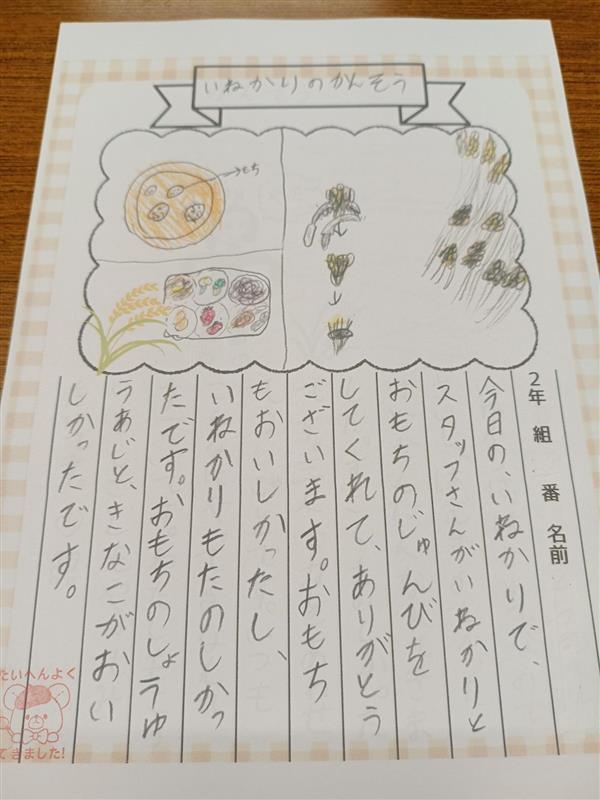 いねかりのかんそう
もち
2年 組 番 名前
今日の、いねかりで、
スタッフさんがいねかりと
おもちのじゅんびを
してくれて、ありがとう
ございます。おもち
もおいしかったし、
いねかりもたのしかっ
たです。おもちのしょうゆ
うあじと、きなこがおい
しかったです。
たいへんよく
できました!